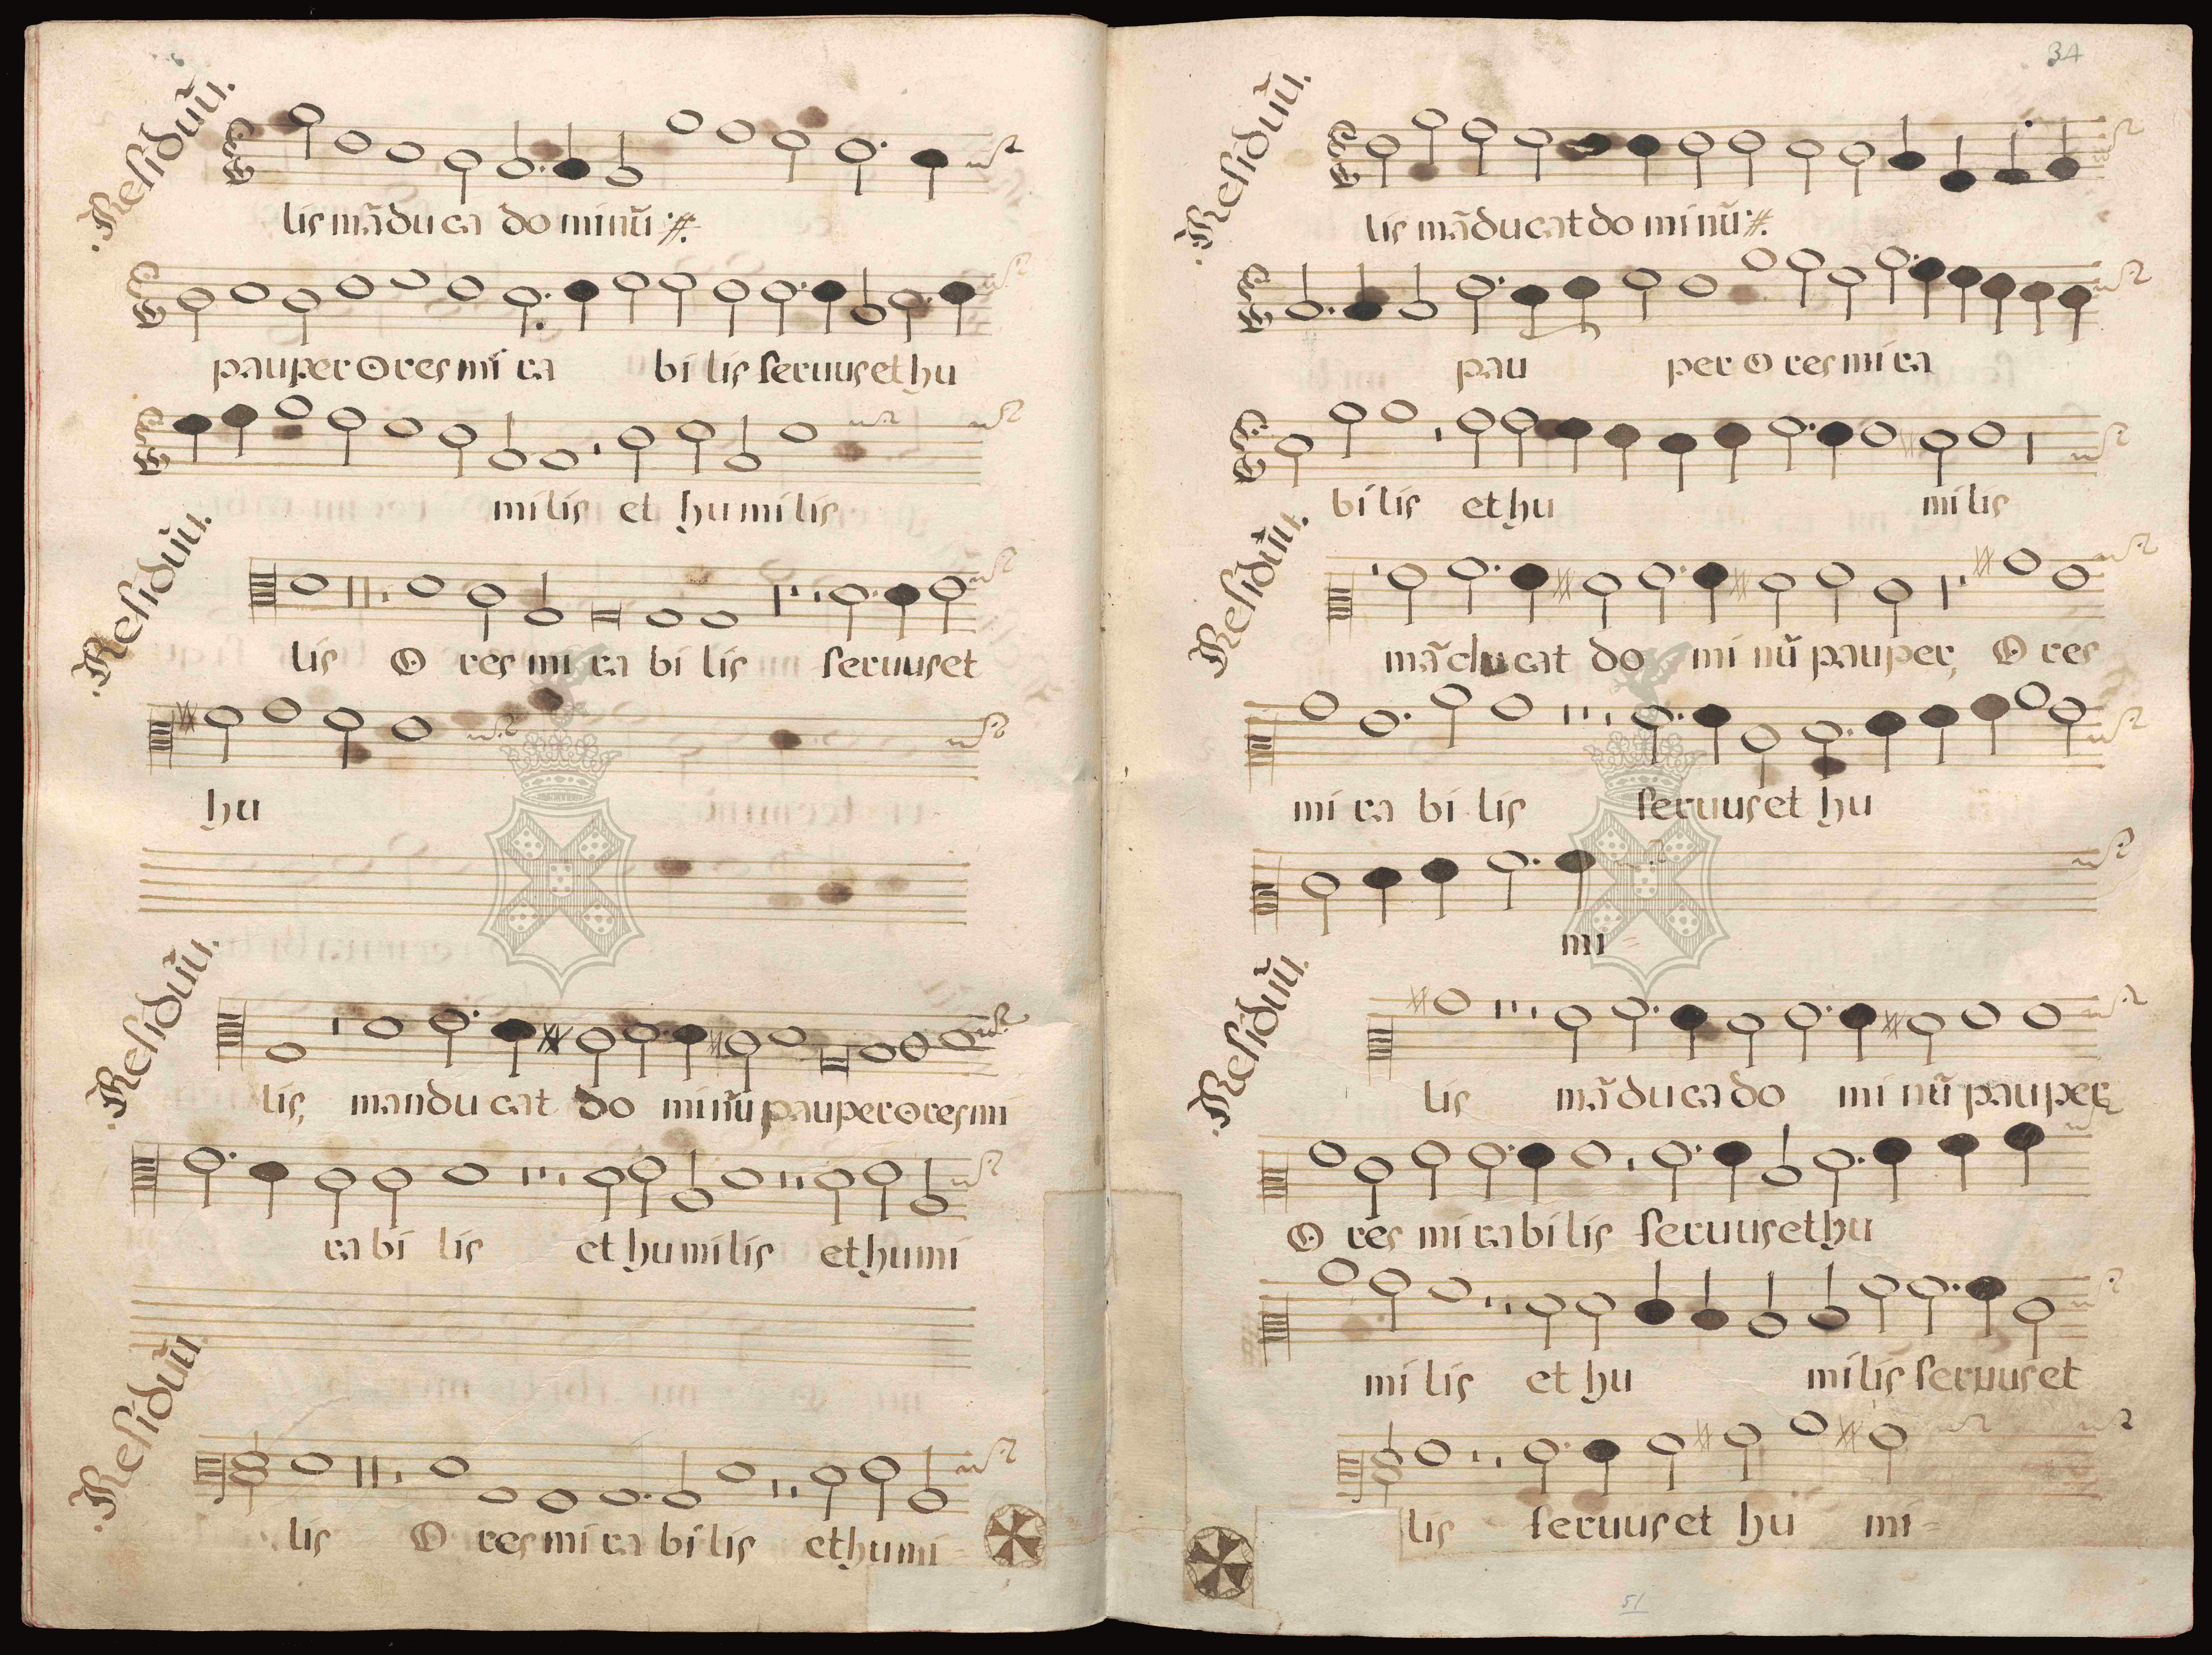 .Residuũ.
lis mãdu ca do minũ ҂
pauper o res mi ra bi lis seruus et hu
mi lis et hu mi lis
.Residuũ.
lis O res mi ra bi lis seruus et
hu
.Residuũ.
lis, mandu cat do minũ pauper o res mi
ra bi lis et hu mi lis et hu mi
.Residuũ
lis O res mi ra bi lis et hu mi
34
.Residuũ.
lis mãdu cat do mi nũ ҂
pau per o res mi ra
bi lis et hu mi lis
.Residuũ.
mãdu cat do mi nũ pauper, O res
mi ra bi lis seruus et hu
mi
.Residuũ.
lis mãdu ca do mi nũ pauper
O res mi ra bi lis seruus et hu
mi lis et hu mi lis seruus et
lis seruus et hu mi
51